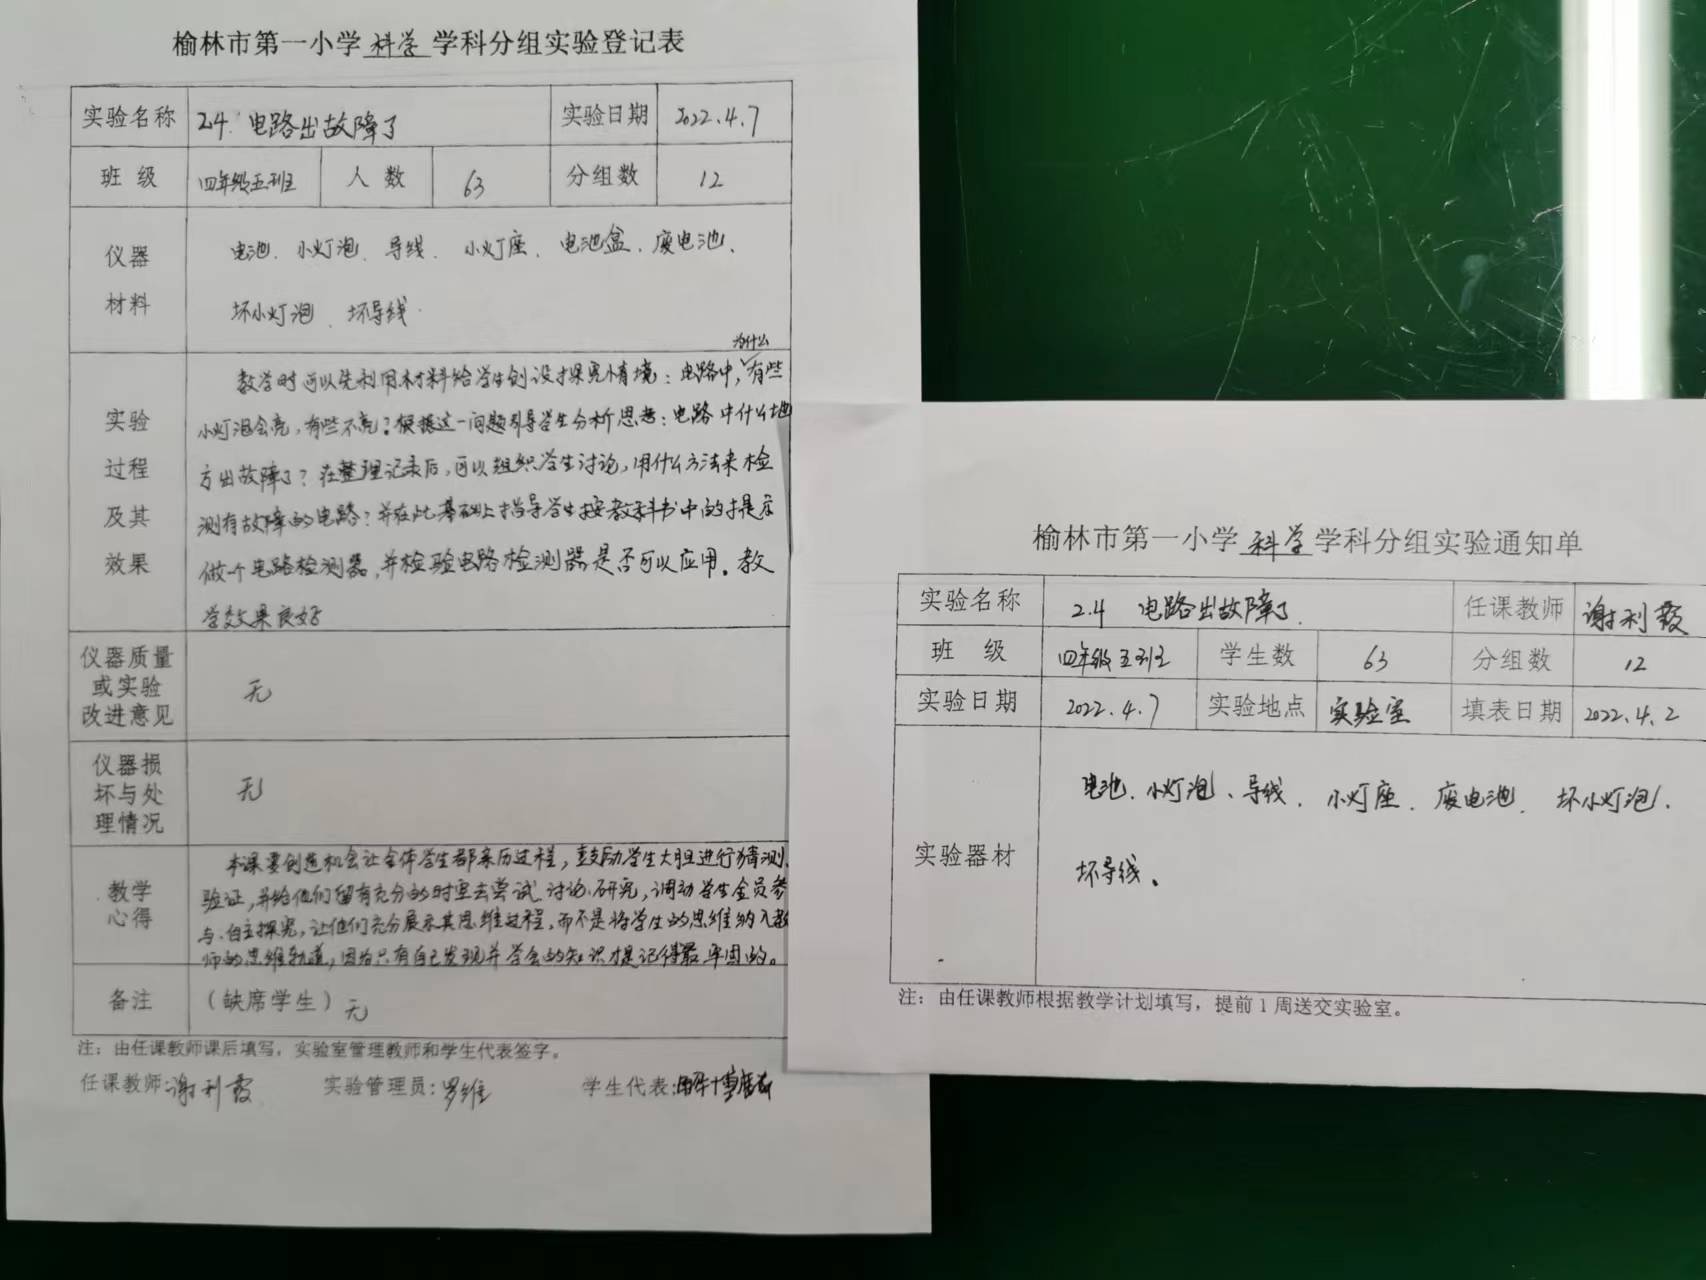 榆林市第一小学 科学 学科分组实验登记表
实验名称 2.4. 电路出故障了 实验日期 2022.4.7
班级 四年级五班 人数 63 分组数 12
仪器材料
电池、小灯泡、导线、小灯座、电池盒、废电池、
坏小灯泡、坏导线.
实验过程及其效果
为什么
教学时可以先利用材料给学生创设探究情境：电路中，有些
小灯泡会亮，有些不亮？根据这一问题引导学生分析思考：电路中什么地
方出故障了？在整理记录后，可以组织学生讨论，用什么方法来检
测有故障的电路？并在此基础上指导学生按教科书中的提示
做个电路检测器，并检验电路检测器是否可以应用。教
学效果良好
仪器质量或实验改进意见 无
仪器损坏与处理情况 无
教学心得
本课要创造机会让全体学生都亲历过程，鼓励学生大胆进行猜测、
验证，并给他们留有充分的时空去尝试、讨论、研究，调动学生全员参
与、自主探究，让他们充分展示其思维过程，而不是将学生的思维纳入教
师的思维轨道，因为只有自己发现并学会的知识才是记得最牢固的。
备注 （缺席学生）无
注：由任课教师课后填写，实验室管理教师和学生代表签字。
任课教师：谢利霞 实验管理员：罗维 学生代表：
榆林市第一小学 科学 学科分组实验通知单
实验名称 2.4 电路出故障了. 任课教师 谢利霞
班级 四年级五班 学生数 63 分组数 12
实验日期 2022.4.7 实验地点 实验室 填表日期 2022.4.2
实验器材
电池、小灯泡、导线、小灯座、废电池、坏小灯泡、
坏导线。
注：由任课教师根据教学计划填写，提前1周送交实验室。